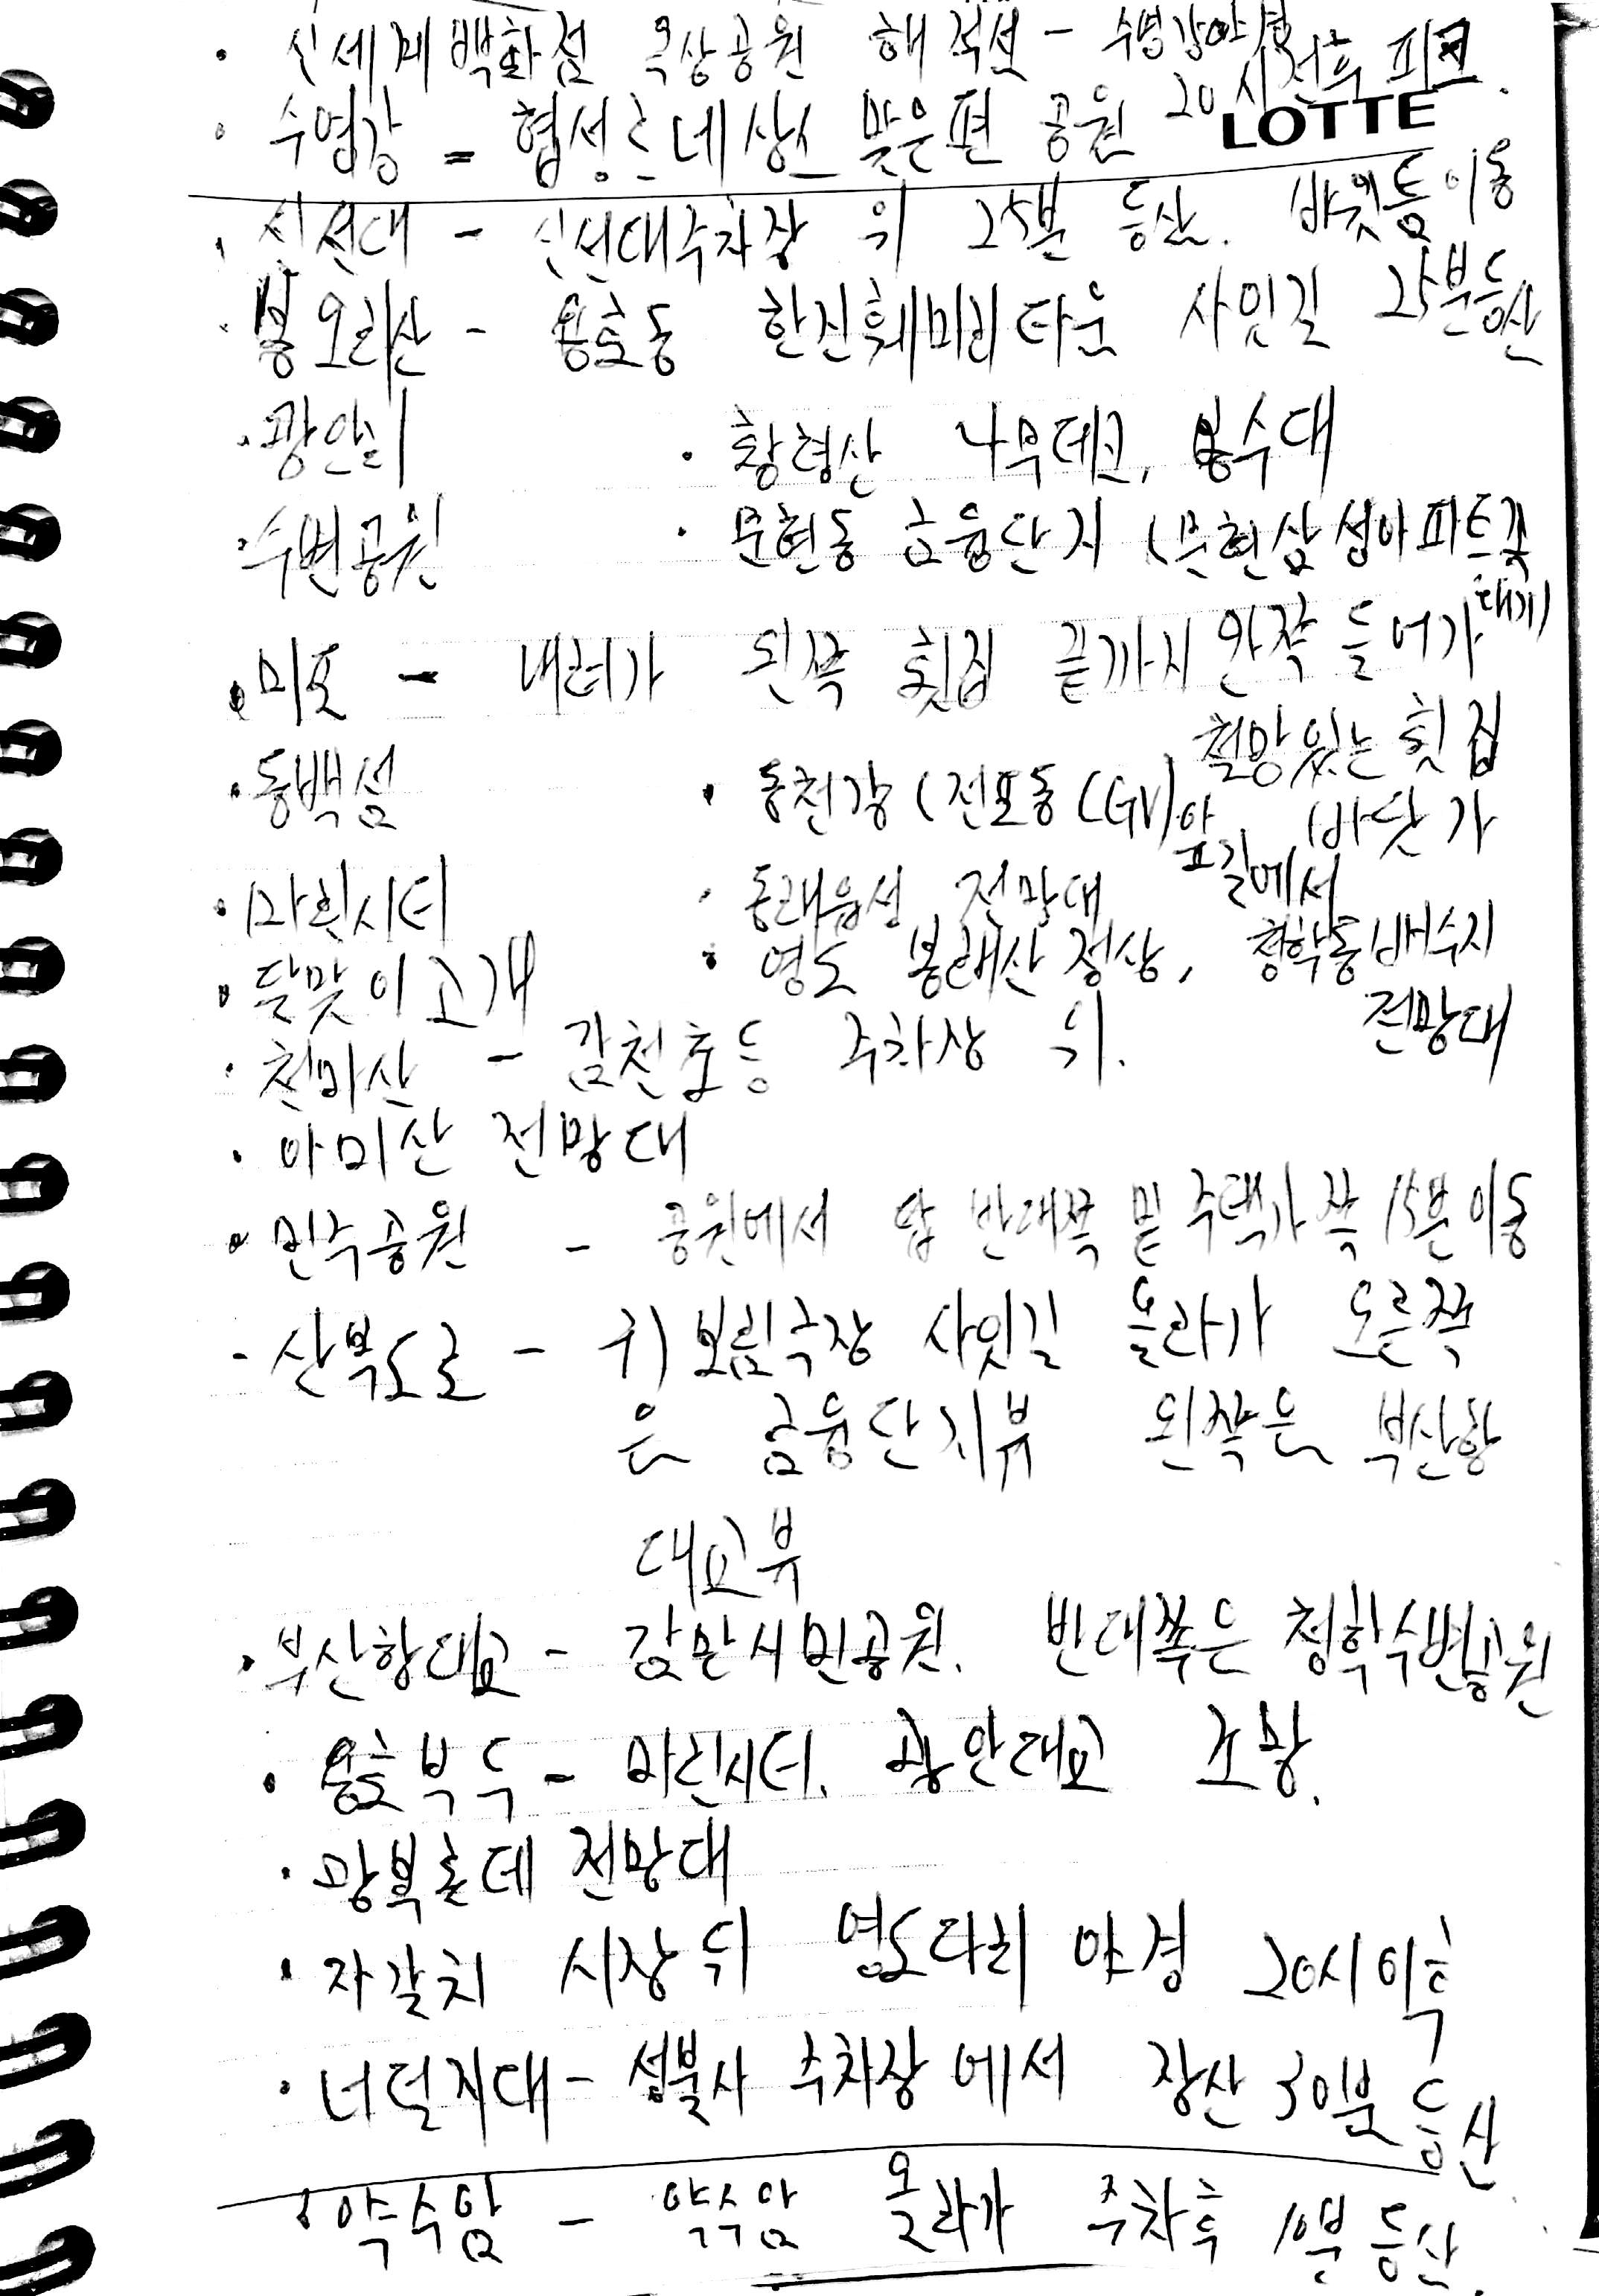 · 신세계백화점 옥상공원 해적선 - 수영강야경
· 수영강 - 협성르네상스 맞은편 공원 20시전후 피크.
LOTTE
· 신선대 - 신선대주차장 위 25분 등산. 바윗돌이동
· 봉오리산 - 용호동 한진훼미리타운 사잇길 25분등산
· 광안리 · 황령산 나무데크, 봉수대
· 수변공원 · 문현동 금융단지 (문현삼성아파트꼭대기)
· 미포 - 내려가 왼쪽 횟집 끝까지 안쪽 들어가
철망있는 횟집
바닷가
· 동백섬 · 동천강 (전포동 CGV)앞
길에서
· 마린시티 · 동래읍성 전망대
· 달맞이고개 · 영도 봉래산 정상, 청학동배수지
전망대
· 천마산 - 감천초등 주차장 위.
· 아미산 전망대
· 민주공원 - 공원에서 탑 반대쪽 밑 주택가쪽 15분이동
- 산복도로 - 구) 보림극장 사잇길 올라가 오른쪽
은 금융단지뷰 왼쪽은 부산항
대교뷰
· 부산항대교 - 감만시민공원. 반대쪽은 청학수변공원
· 용호부두 - 마린시티. 광안대교 조망.
· 광복롯데 전망대
· 자갈치 시장뒤 영도다리 야경 20시이후
· 너덜지대 - 성불사 주차장에서 장산 30분 등산
· 약수암 - 약수암 올라가 주차후 10분 등산.